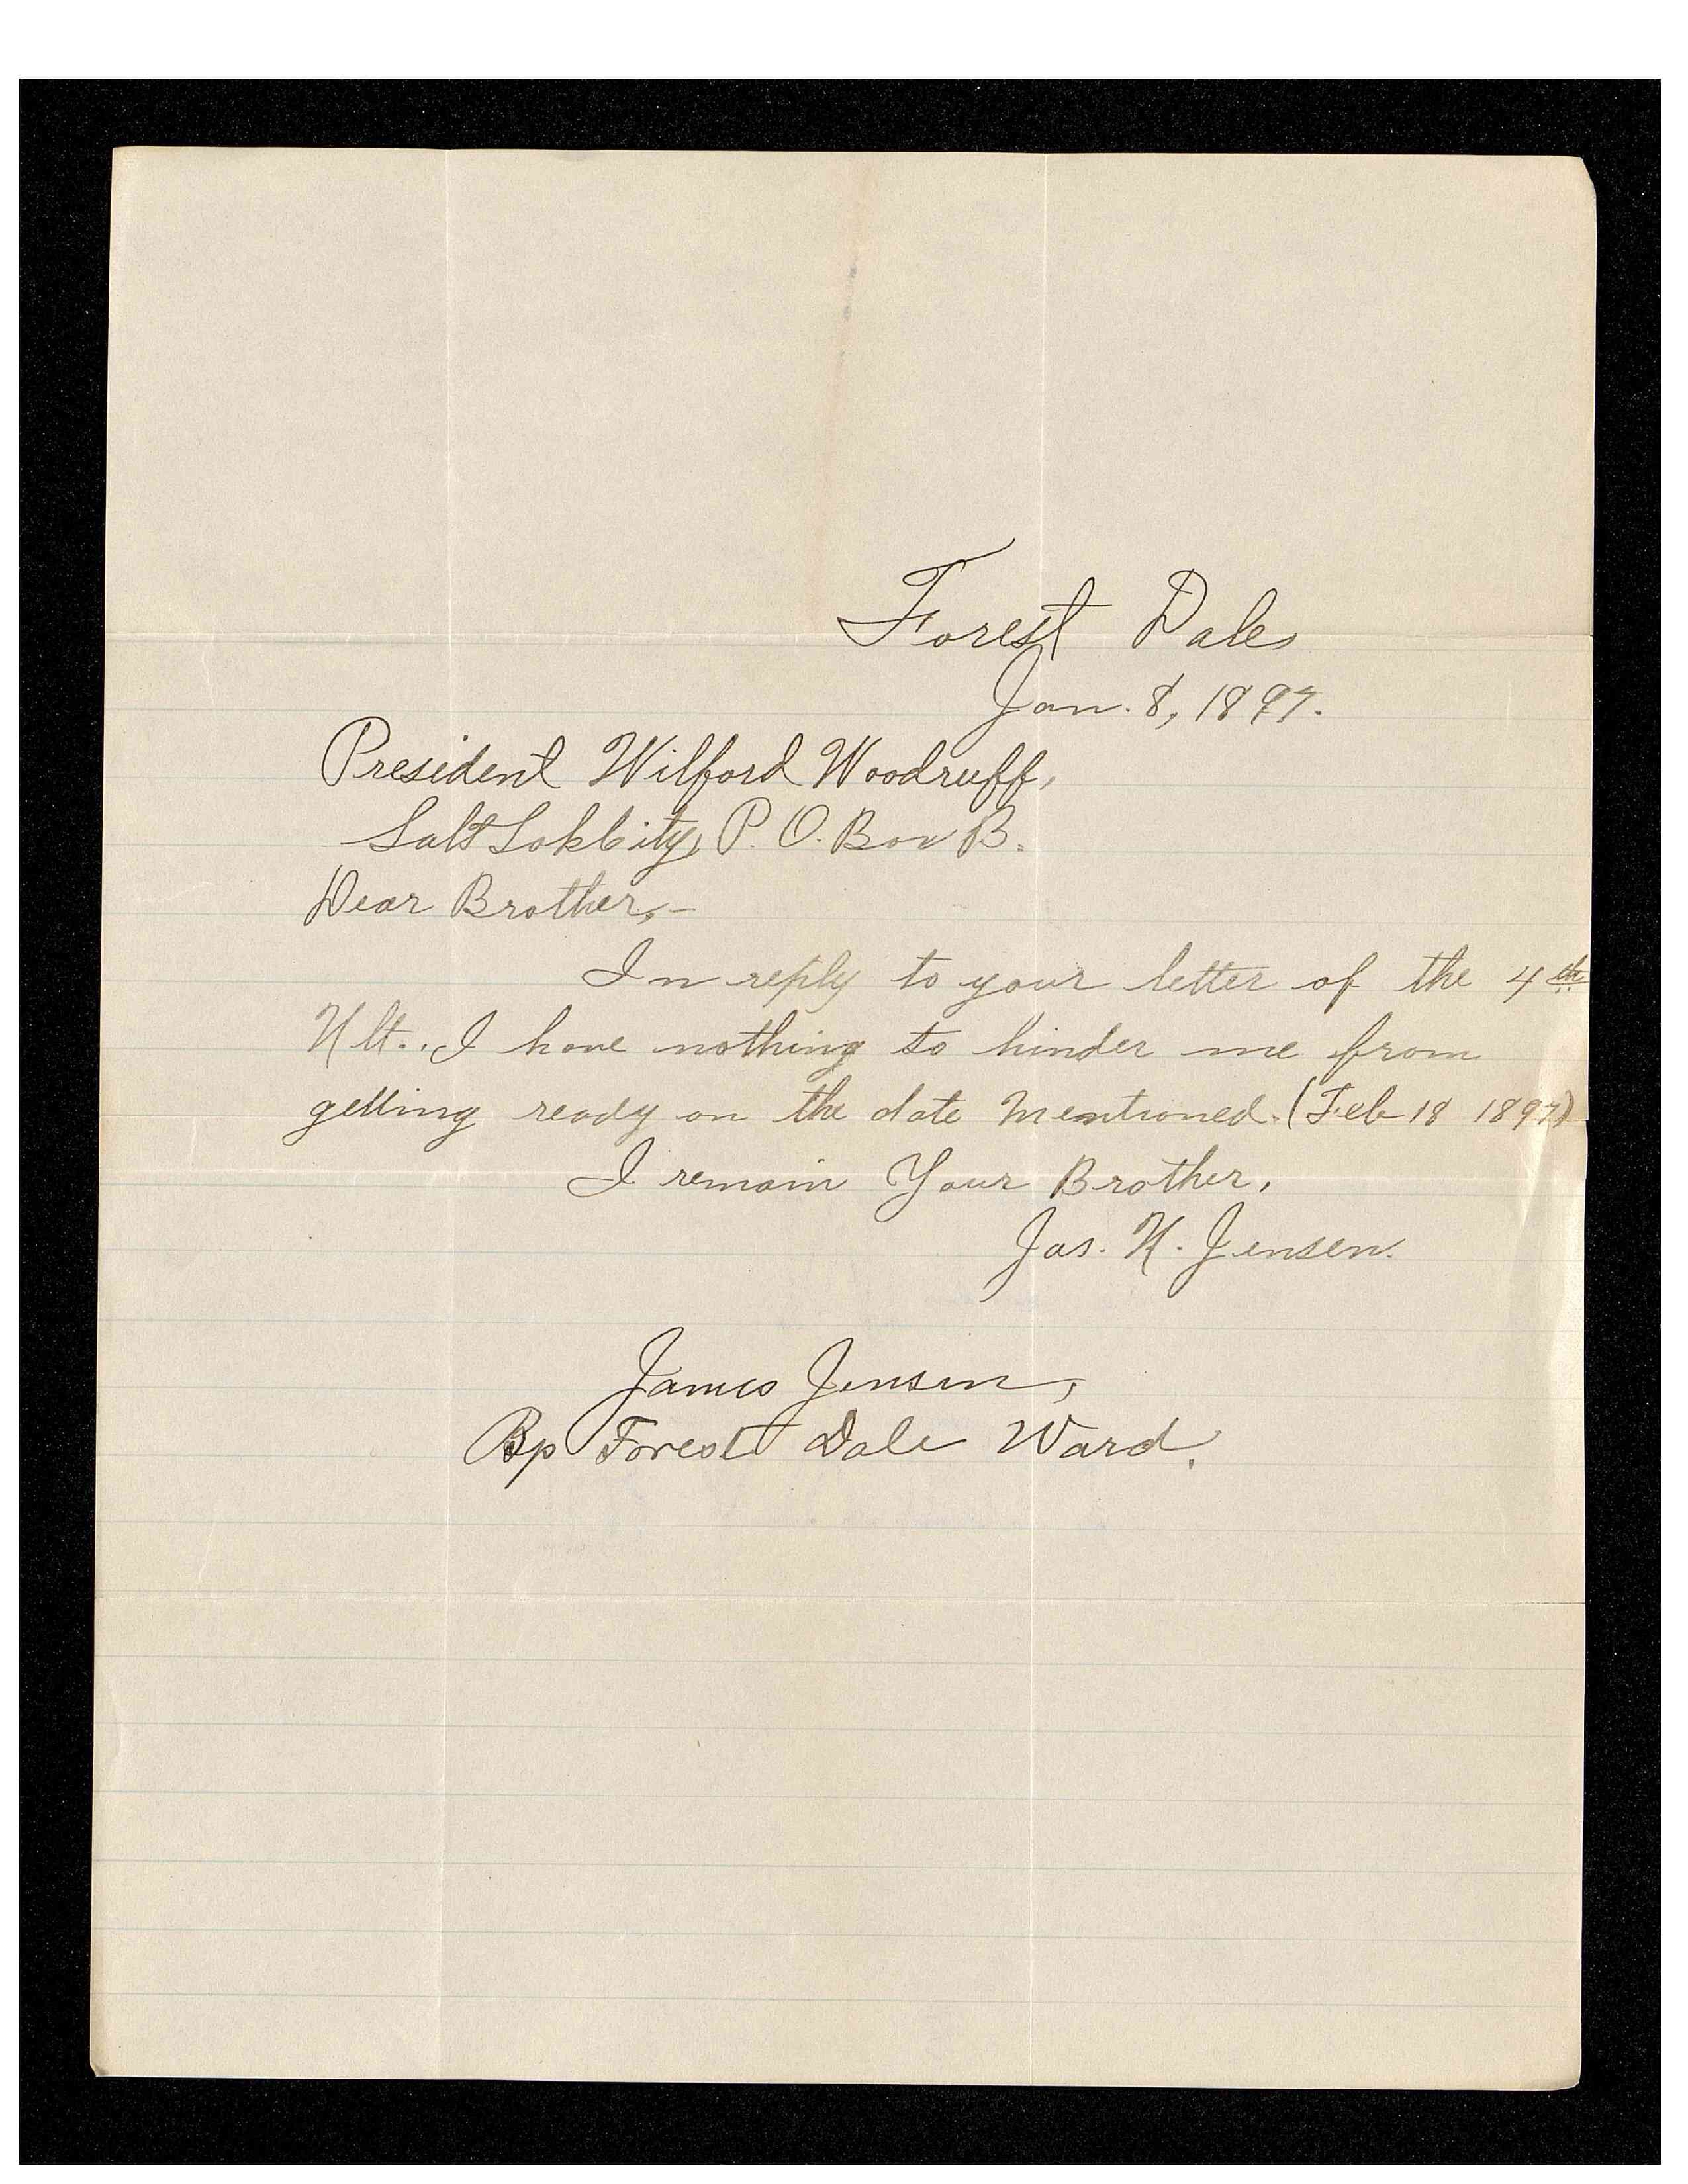 Forest Dale
Jan. 8, 1897.
President Wilford Woodruff,
Salt Lak City, P. O. Box B.
Dear Brother,-
In reply to your letter of the 4th
Ult.. I have nothing to hinder me from
getting ready on the date mentioned. (Feb 18 1897)
I remain Your Brother,
Jas. H. Jensen.
James Jensen,
Bp Forest Dale Ward.